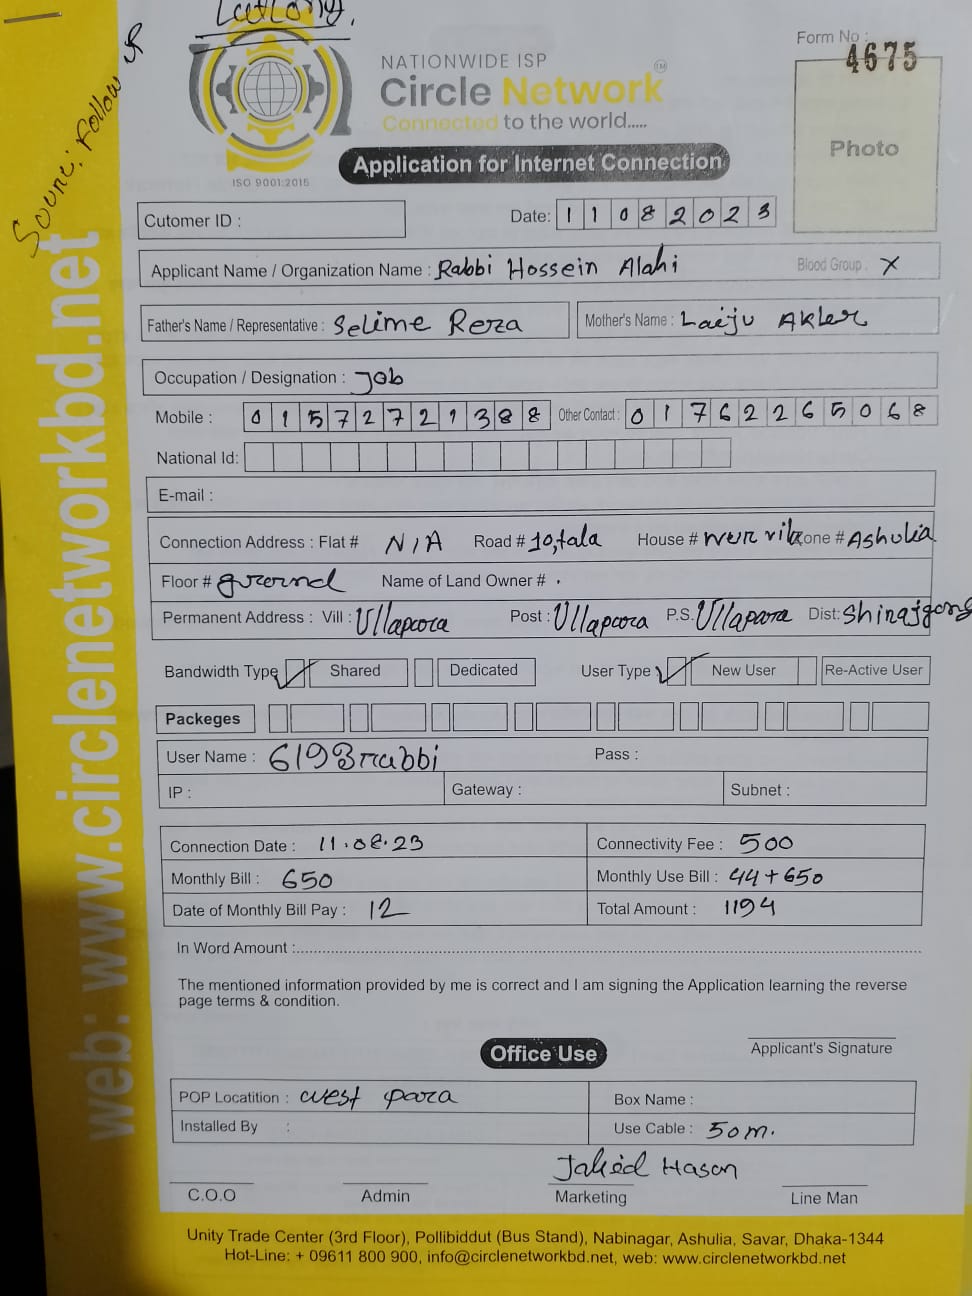 Form No :
4675
NATIONWIDE ISP
Circle Network TM
Connected to the world.....
ISO 9001:2015
Application for Internet Connection
Photo
Source: Follow
web: www.circlenetworkbd.net
Cutomer ID :
Date: 11082023
Applicant Name / Organization Name : Rabbi Hossein Alahi
Blood Group : X
Father's Name / Representative : Selime Reza
Mother's Name : Laiju Akter
Occupation / Designation : Job
Mobile : 01572721388 Other Contact : 01762265068
National Id:
E-mail :
Connection Address : Flat # N/A Road # 10,tala House # nur Zone # Ashulia
Floor # ground Name of Land Owner # .
Permanent Address : Vill : Ullapara Post : Ullapara P.S. Ullapara Dist: Shirajgong
Bandwidth Type Shared Dedicated User Type New User Re-Active User
Packeges
User Name : 6193rabbi Pass :
IP : Gateway : Subnet :
Connection Date : 11.08.23 Connectivity Fee : 500
Monthly Bill : 650 Monthly Use Bill : 44+650
Date of Monthly Bill Pay : 12 Total Amount : 1194
In Word Amount :
The mentioned information provided by me is correct and I am signing the Application learning the reverse
page terms & condition.
Applicant's Signature
Office Use
POP Locatition : west para Box Name :
Installed By : Use Cable : 50m.
Jahid Hasan
C.O.O Admin Marketing Line Man
Unity Trade Center (3rd Floor), Pollibiddut (Bus Stand), Nabinagar, Ashulia, Savar, Dhaka-1344
Hot-Line: + 09611 800 900, info@circlenetworkbd.net, web: www.circlenetworkbd.net